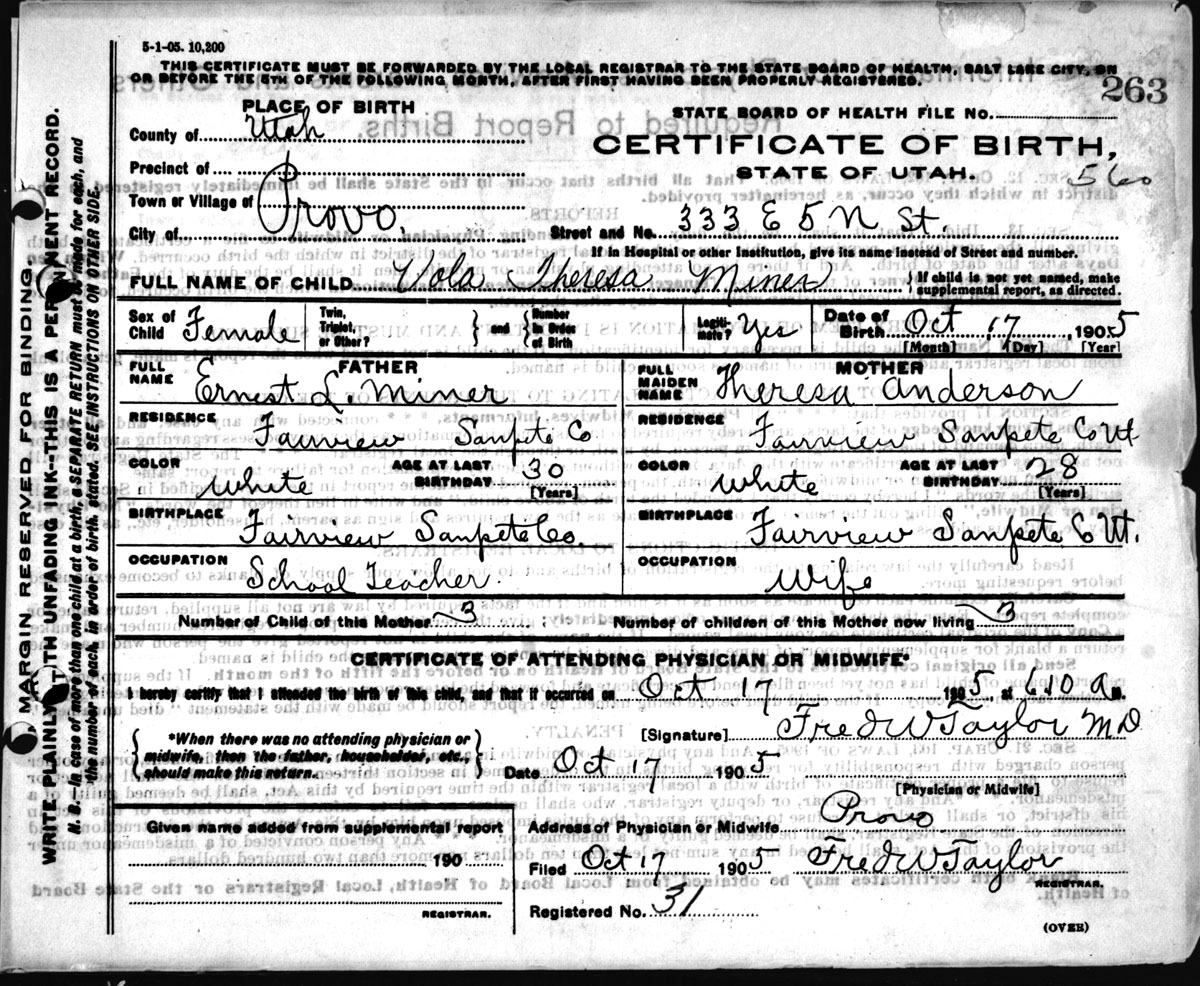 5-1-05. 10,200
THIS CERTIFICATE MUST BE FORWARDED BY THE LOCAL REGISTRAR TO THE STATE BOARD OF HEALTH, SALT LAKE CITY, ON
OR BEFORE THE 5TH OF THE FOLLOWING MONTH, AFTER FIRST HAVING BEEN PROPERLY REGISTERED.
263
PLACE OF BIRTH
STATE BOARD OF HEALTH FILE No.
County of Utah
CERTIFICATE OF BIRTH,
Precinct of
STATE OF UTAH.
560
Town or Village of
City of Provo.
Street and No. 333 E 5 N St.
If in Hospital or other Institution, give its name instead of Street and number.
FULL NAME OF CHILD Vola Theresa Miner
If child is not yet named, make
supplemental report, as directed.
Sex of Child Female
Twin, Triplet, or Other?
and
Number in Order of Birth
Legitimate? Yes
Date of Birth Oct 17, 1905
[Month] [Day] [Year]
FATHER
FULL NAME Ernest L. Miner
MOTHER
FULL MAIDEN NAME Theresa Anderson
RESIDENCE Fairview Sanpete Co
RESIDENCE Fairview Sanpete Co Ut
COLOR White
AGE AT LAST BIRTHDAY 30
[Years]
COLOR White
AGE AT LAST BIRTHDAY 28
[Years]
BIRTHPLACE Fairview Sanpete Co.
BIRTHPLACE Fairview Sanpete Co Ut.
OCCUPATION School Teacher
OCCUPATION Wife
Number of Child of this Mother 3
Number of children of this Mother now living 3
CERTIFICATE OF ATTENDING PHYSICIAN OR MIDWIFE*
I hereby certify that I attended the birth of this child, and that it occurred on Oct 17 1905, at 6 10 A M.
[Signature] Fred W Taylor MD
*When there was no attending physician or
midwife, then the father, householder, etc.,
should make this return.
Date Oct 17 1905
[Physician or Midwife]
Given name added from supplemental report
190
REGISTRAR.
Address of Physician or Midwife Provo
Filed Oct 17 1905 Fred W Taylor
REGISTRAR.
Registered No. 31
(OVER)
MARGIN RESERVED FOR BINDING.
WRITE PLAINLY WITH UNFADING INK--THIS IS A PERMANENT RECORD.
N. B. In case of more than one child at a birth, a SEPARATE RETURN must be made for each, and
the number of each, in order of birth, stated. SEE INSTRUCTIONS ON OTHER SIDE.